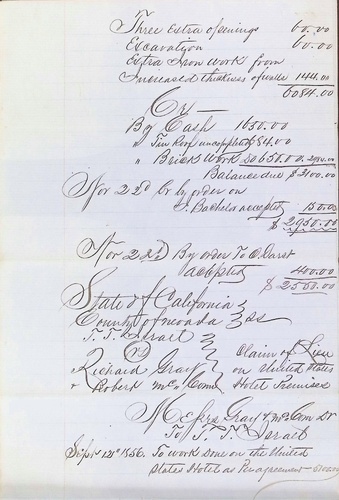 Three Extra openings 60.00
Excavation 60.00
Extra Iron work from
Increased thickness of walls 144.00
6084.00
Cr
By Cash 1650.00
" Tin Roof uncompleted 684.00
" Brick Work
Balance due $3100.00
Nov 22d Cr by order on
Bachelor accepted 150.00
$ 2950.00
Nov 22d By order To
accepted 400.00
$ 2550.00
State of California
County of nevada ss
T. T. Israel
vs
Richard Gray
& Robert Mc Comd
Claim of Lien
on United States
Hotel Premises
Messrs Gray & Mc Com Dr
To T. T. Israel
Sept 12th 1856. To work done on the United
States Hotel as Per agreement